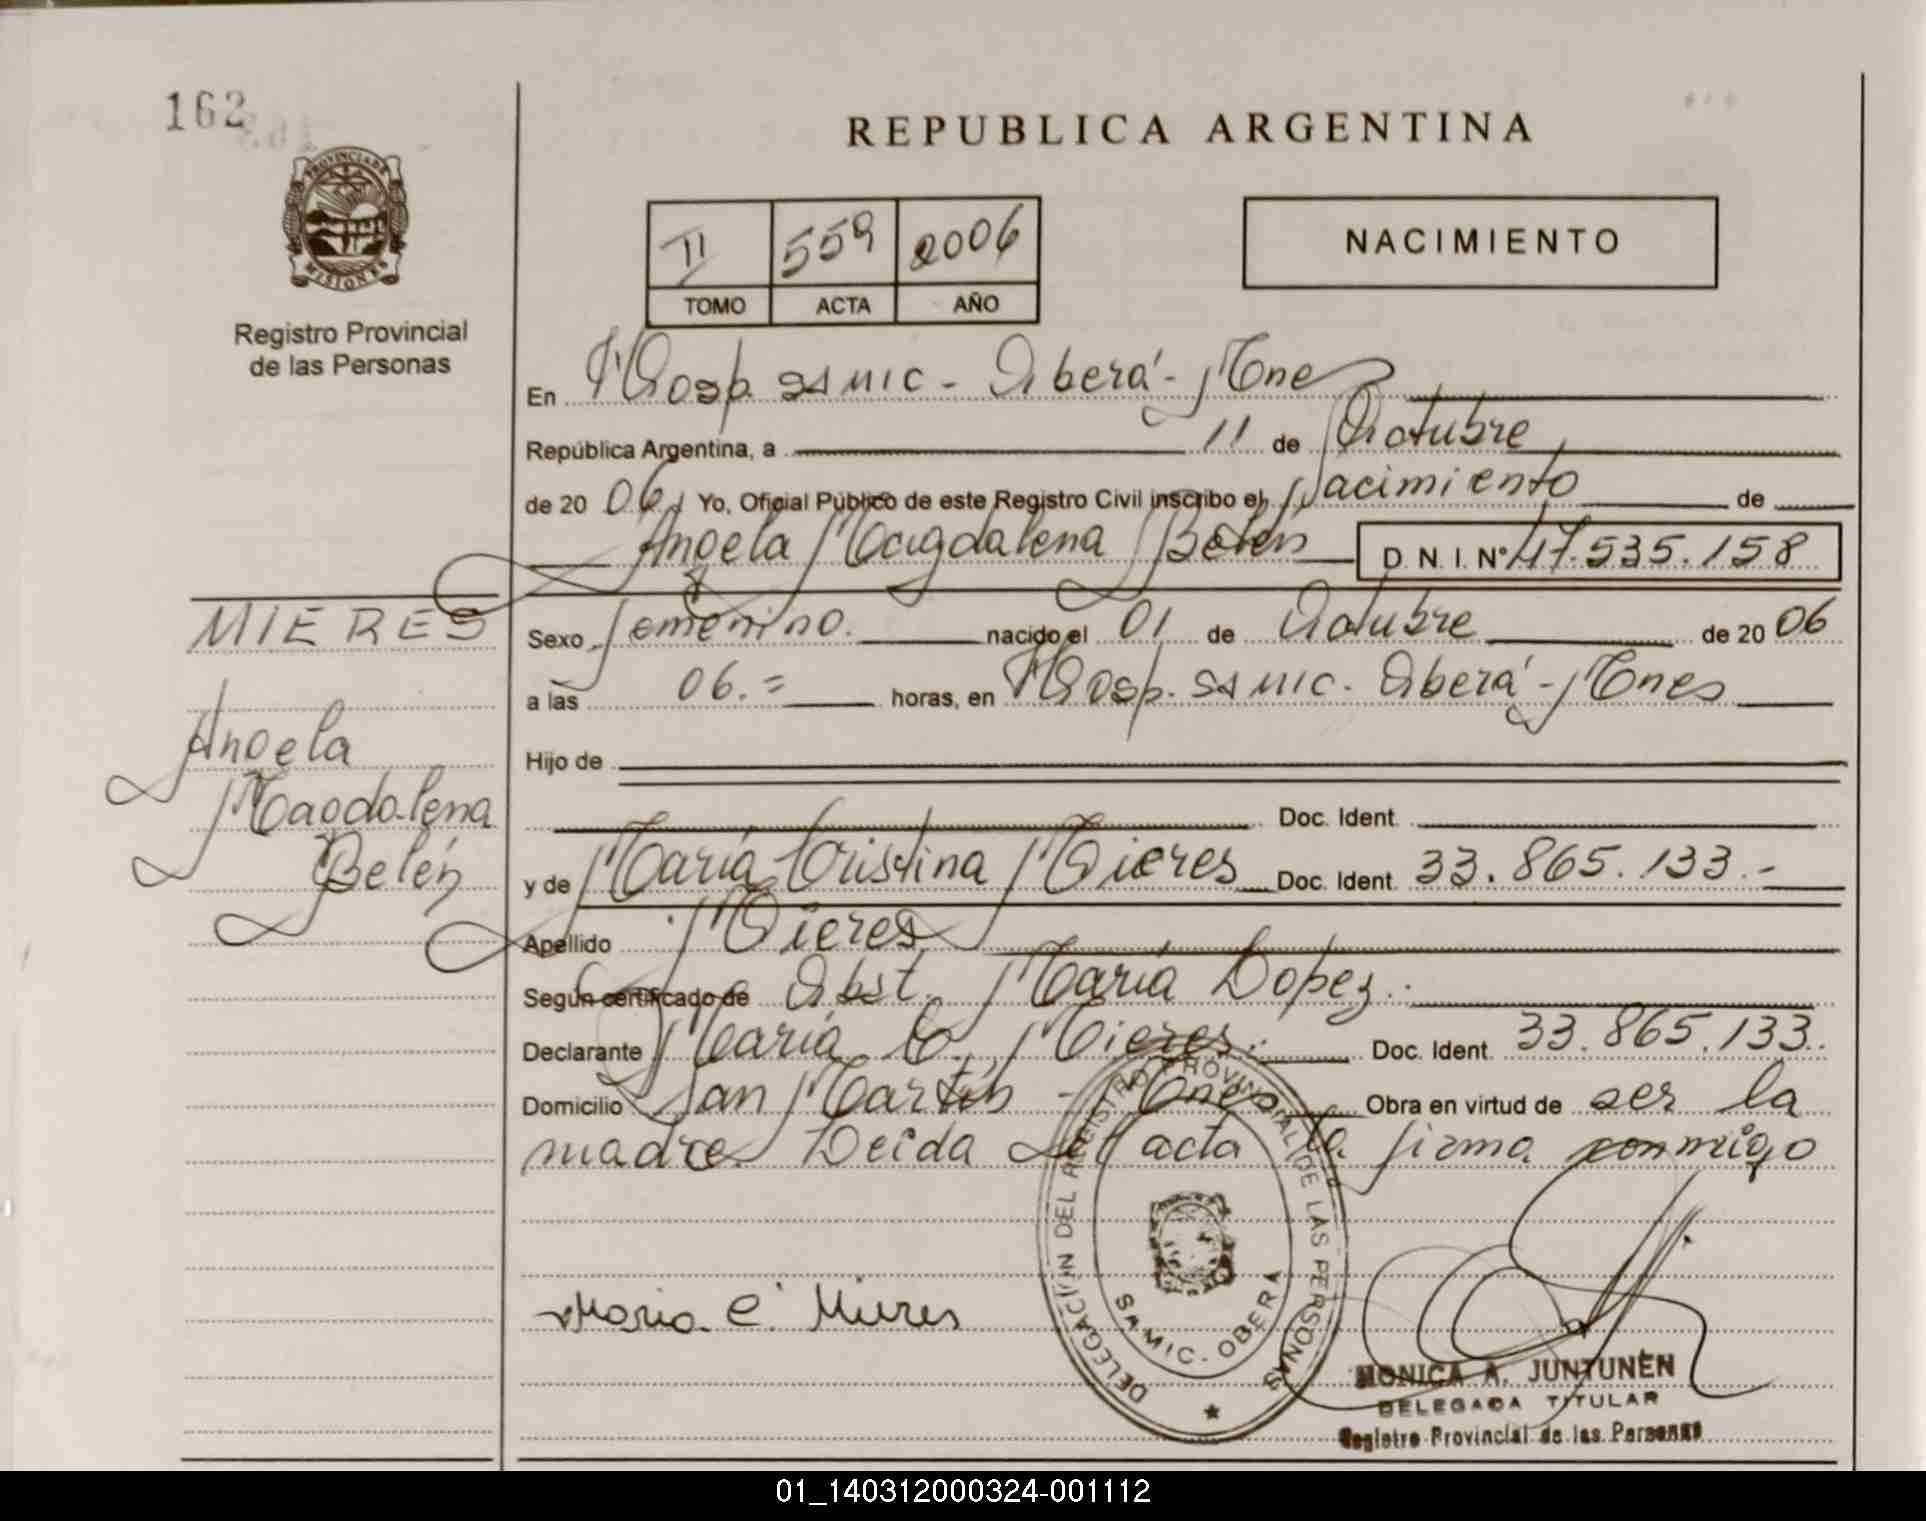 162
PROVINCIA DE
MISIONES
Registro Provincial
de las Personas
REPUBLICA ARGENTINA
II 559 2006
TOMO ACTA AÑO
NACIMIENTO
En Hosp. SAMIC - Oberá - Mnes
República Argentina, a 11 de Octubre
de 20 06, Yo, Oficial Público de este Registro Civil inscribo el Nacimiento de
Angela Magdalena Belén D.N.I. Nº 47.535.158
MIERES
Angela
Magdalena
Belén
Sexo femenino. nacido el 01 de Octubre de 20 06
a las 06.= horas, en Hosp. SAMIC. Oberá - Mnes
Hijo de
Doc. Ident.
y de María Cristina Mieres Doc. Ident. 33.865.133.-
Apellido Mieres
Según certificado de Obst. María Lopez.
Declarante María C. Mieres. Doc. Ident. 33.865.133.
Domicilio San Martín - Mnes Obra en virtud de ser la
madre. Leída el acta la firma conmigo
Maria C. Mieres
DELEGACIÓN DEL REGISTRO PROVINCIAL DE LAS PERSONAS
SAMIC - OBERA
MONICA A. JUNTUNEN
DELEGADA TITULAR
Registro Provincial de las Personas
01_140312000324-001112